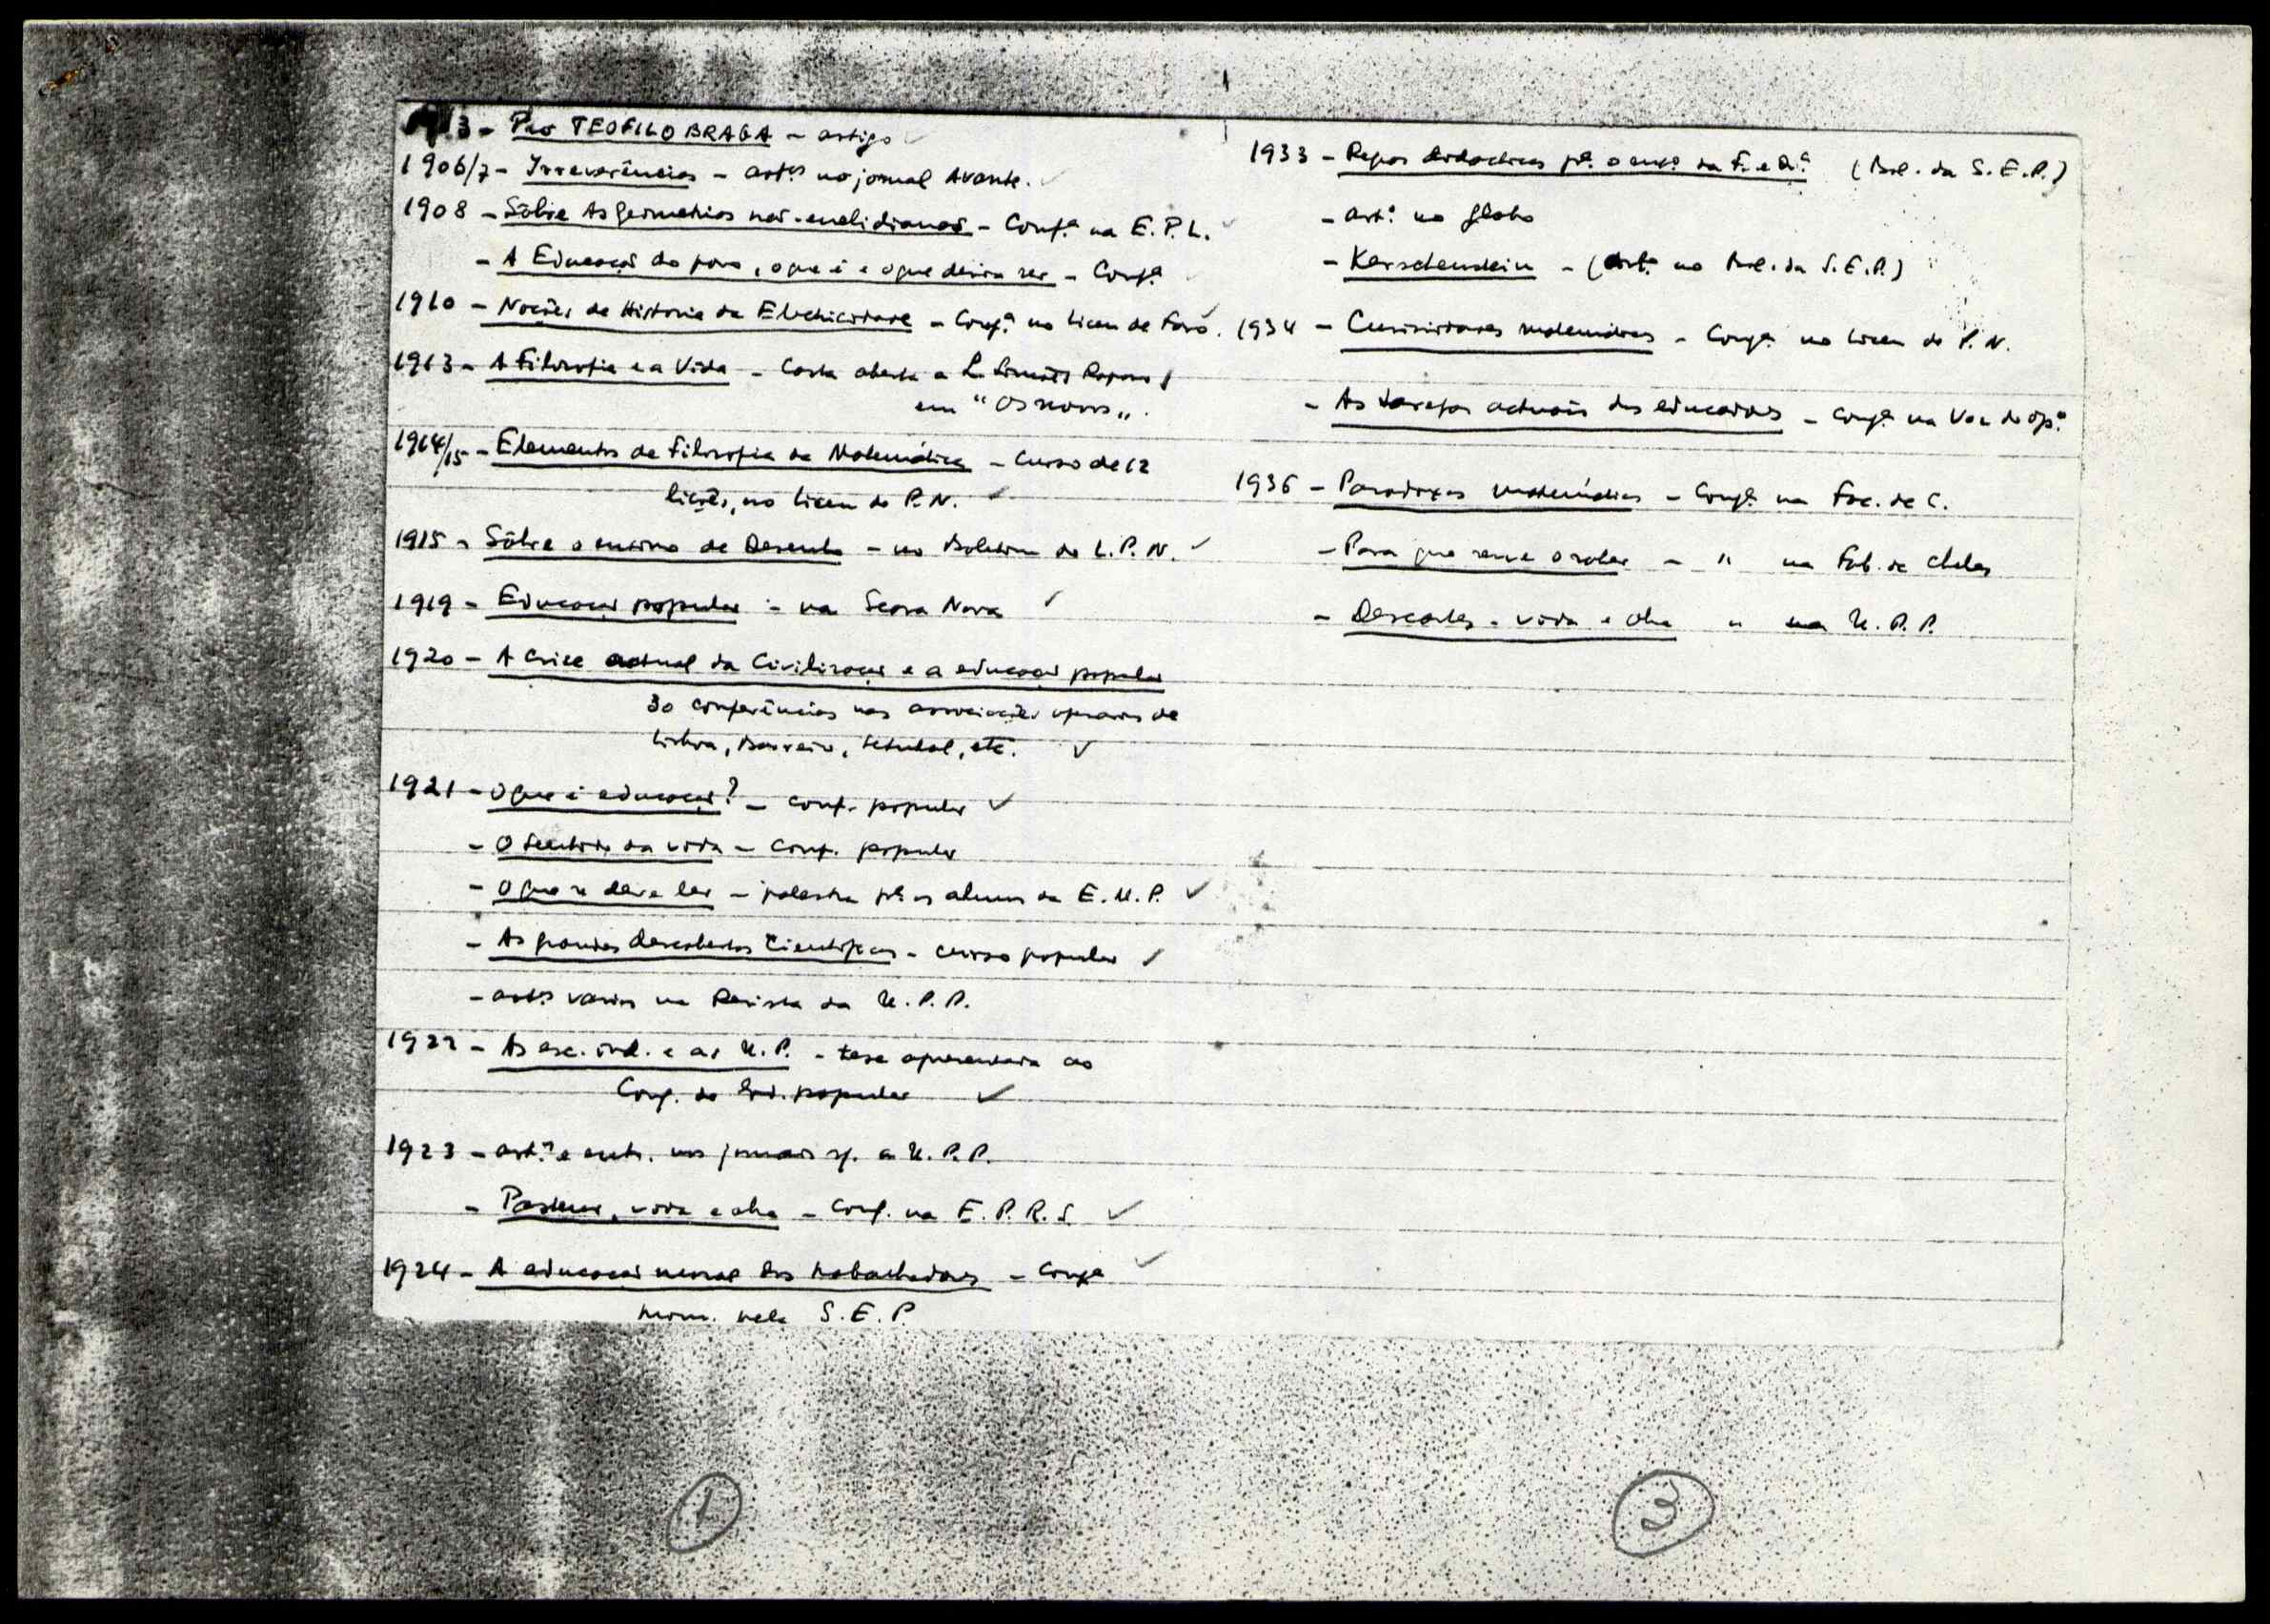 3 - Pro TEOFILO BRAGA - artigo
1906/7 - Irreverências - artºs no jornal Avante.
1908 - Sôbre As geometrias não-euclidianas - Confª na E. P. L.
- A Educação do povo, o que é e o que devia ser - Confª
1910 - Noções de Historia da Electricidade - Confª no Liceu de Faro.
1913 - A Filosofia e a Vida - Carta aberta a L. Simões Raposo
em "Os novos".
1914/15 - Elementos de Filosofia da Matemática - Curso de 12
lições, no Liceu de P. N.
1915 - Sôbre o ensino de Desenho - no Boletim do L. P. N.
1919 - Educação popular - na Seara Nova
1920 - A crise actual da Civilização e a educação popular
30 conferências nas associações operarias de
Lisboa, Barreiro, Setubal, etc.
1921 - O que é educação? - conf. popular
- O Sentido da vida - conf. popular
- O que se deve ler - palestra pª os alunos da E. U. P.
- As grandes descobertas Cientificas - curso popular
- artºs varios na Revista da U. P. P.
1922 - As esc. ind. e as U. P. - tese apresentada ao
Cong. de Ed. popular
1923 - artºs e entr. nos jornais sf. a U. P. P.
- Pasteur, vida e obra - Conf. na E. P. R. S.
1924 - A educação moral dos trabalhadores - Confª
prom. pela S. E. P.
1
1933 - Regras didacticas pª o ensº da F. e Qª (Bol. da S. E. P.)
- artº no Globo
- Kerschenstein - (artº no Bol. da S. E. P.)
1934 - Curiosidades matemáticas - Confª no Liceu de P. N.
- As tarefas actuais dos educadores - Confª na Voz do Opº
1936 - Paradoxos matemáticos - Confª na Fac. de C.
- Para que serve o saber - " na Fab. de Chelas
- Descartes - vida e obra " na U. P. P.
3